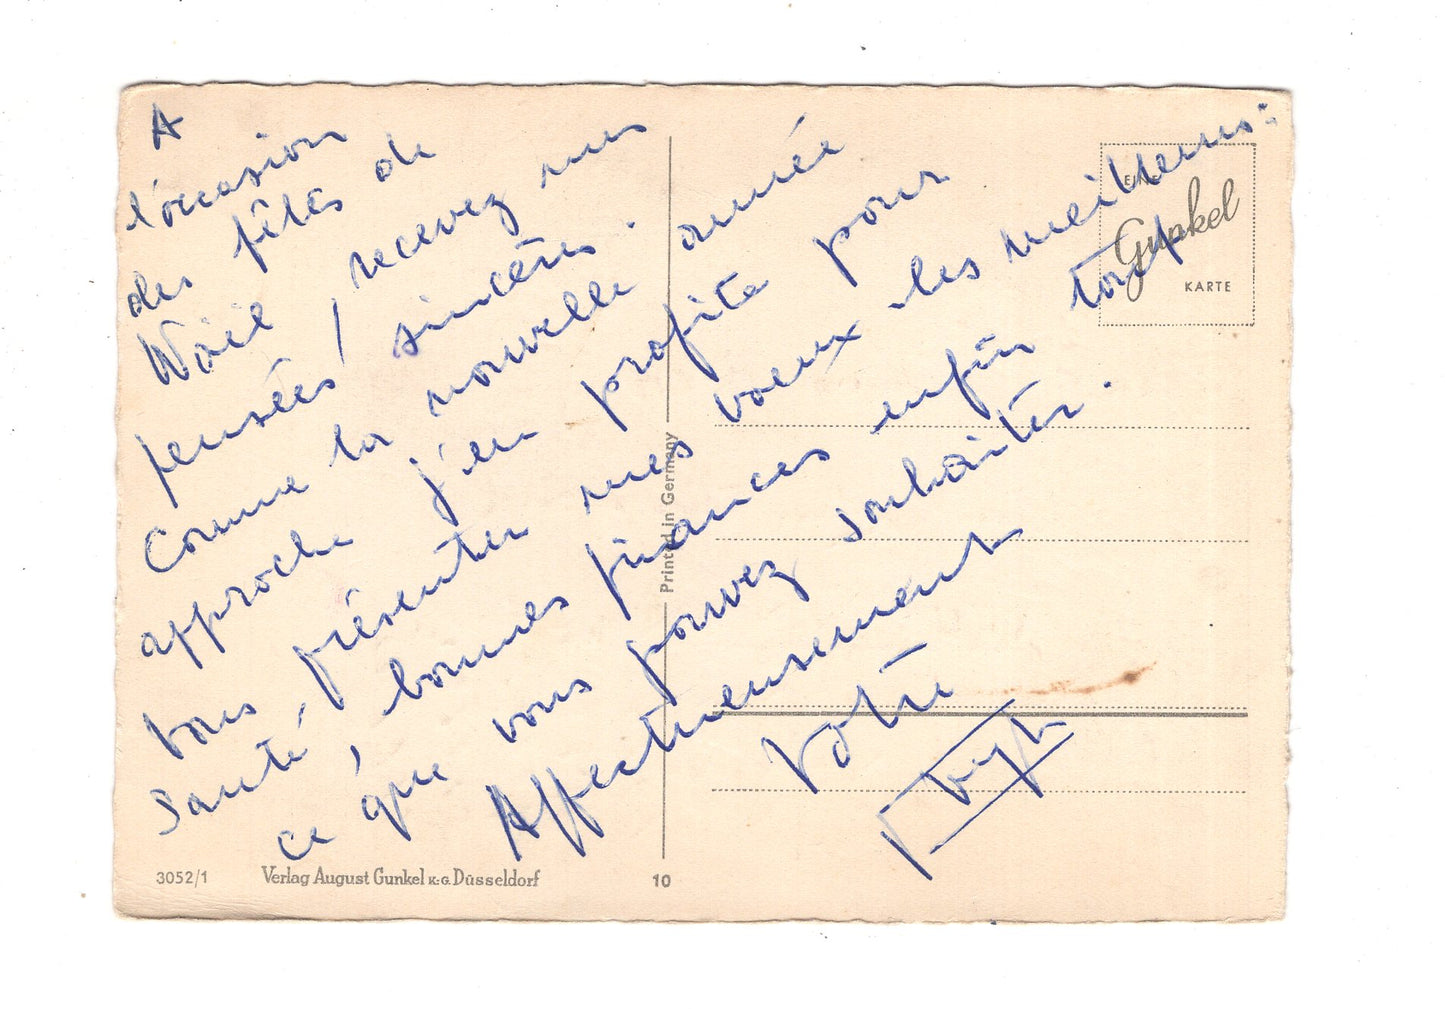 A
l'occasion
des fêtes de
Noël, recevez mes
pensées sincères.
Comme la nouvelle année
approche j'en profite pour
vous présenter mes voeux les meilleurs:
Santé, bonnes finances enfin tout
ce que vous pouvez souhaiter.
Affectueusement
Votre
EINE
Gunkel
KARTE
Printed in Germany
3052/1
Verlag August Gunkel K.G. Düsseldorf
10